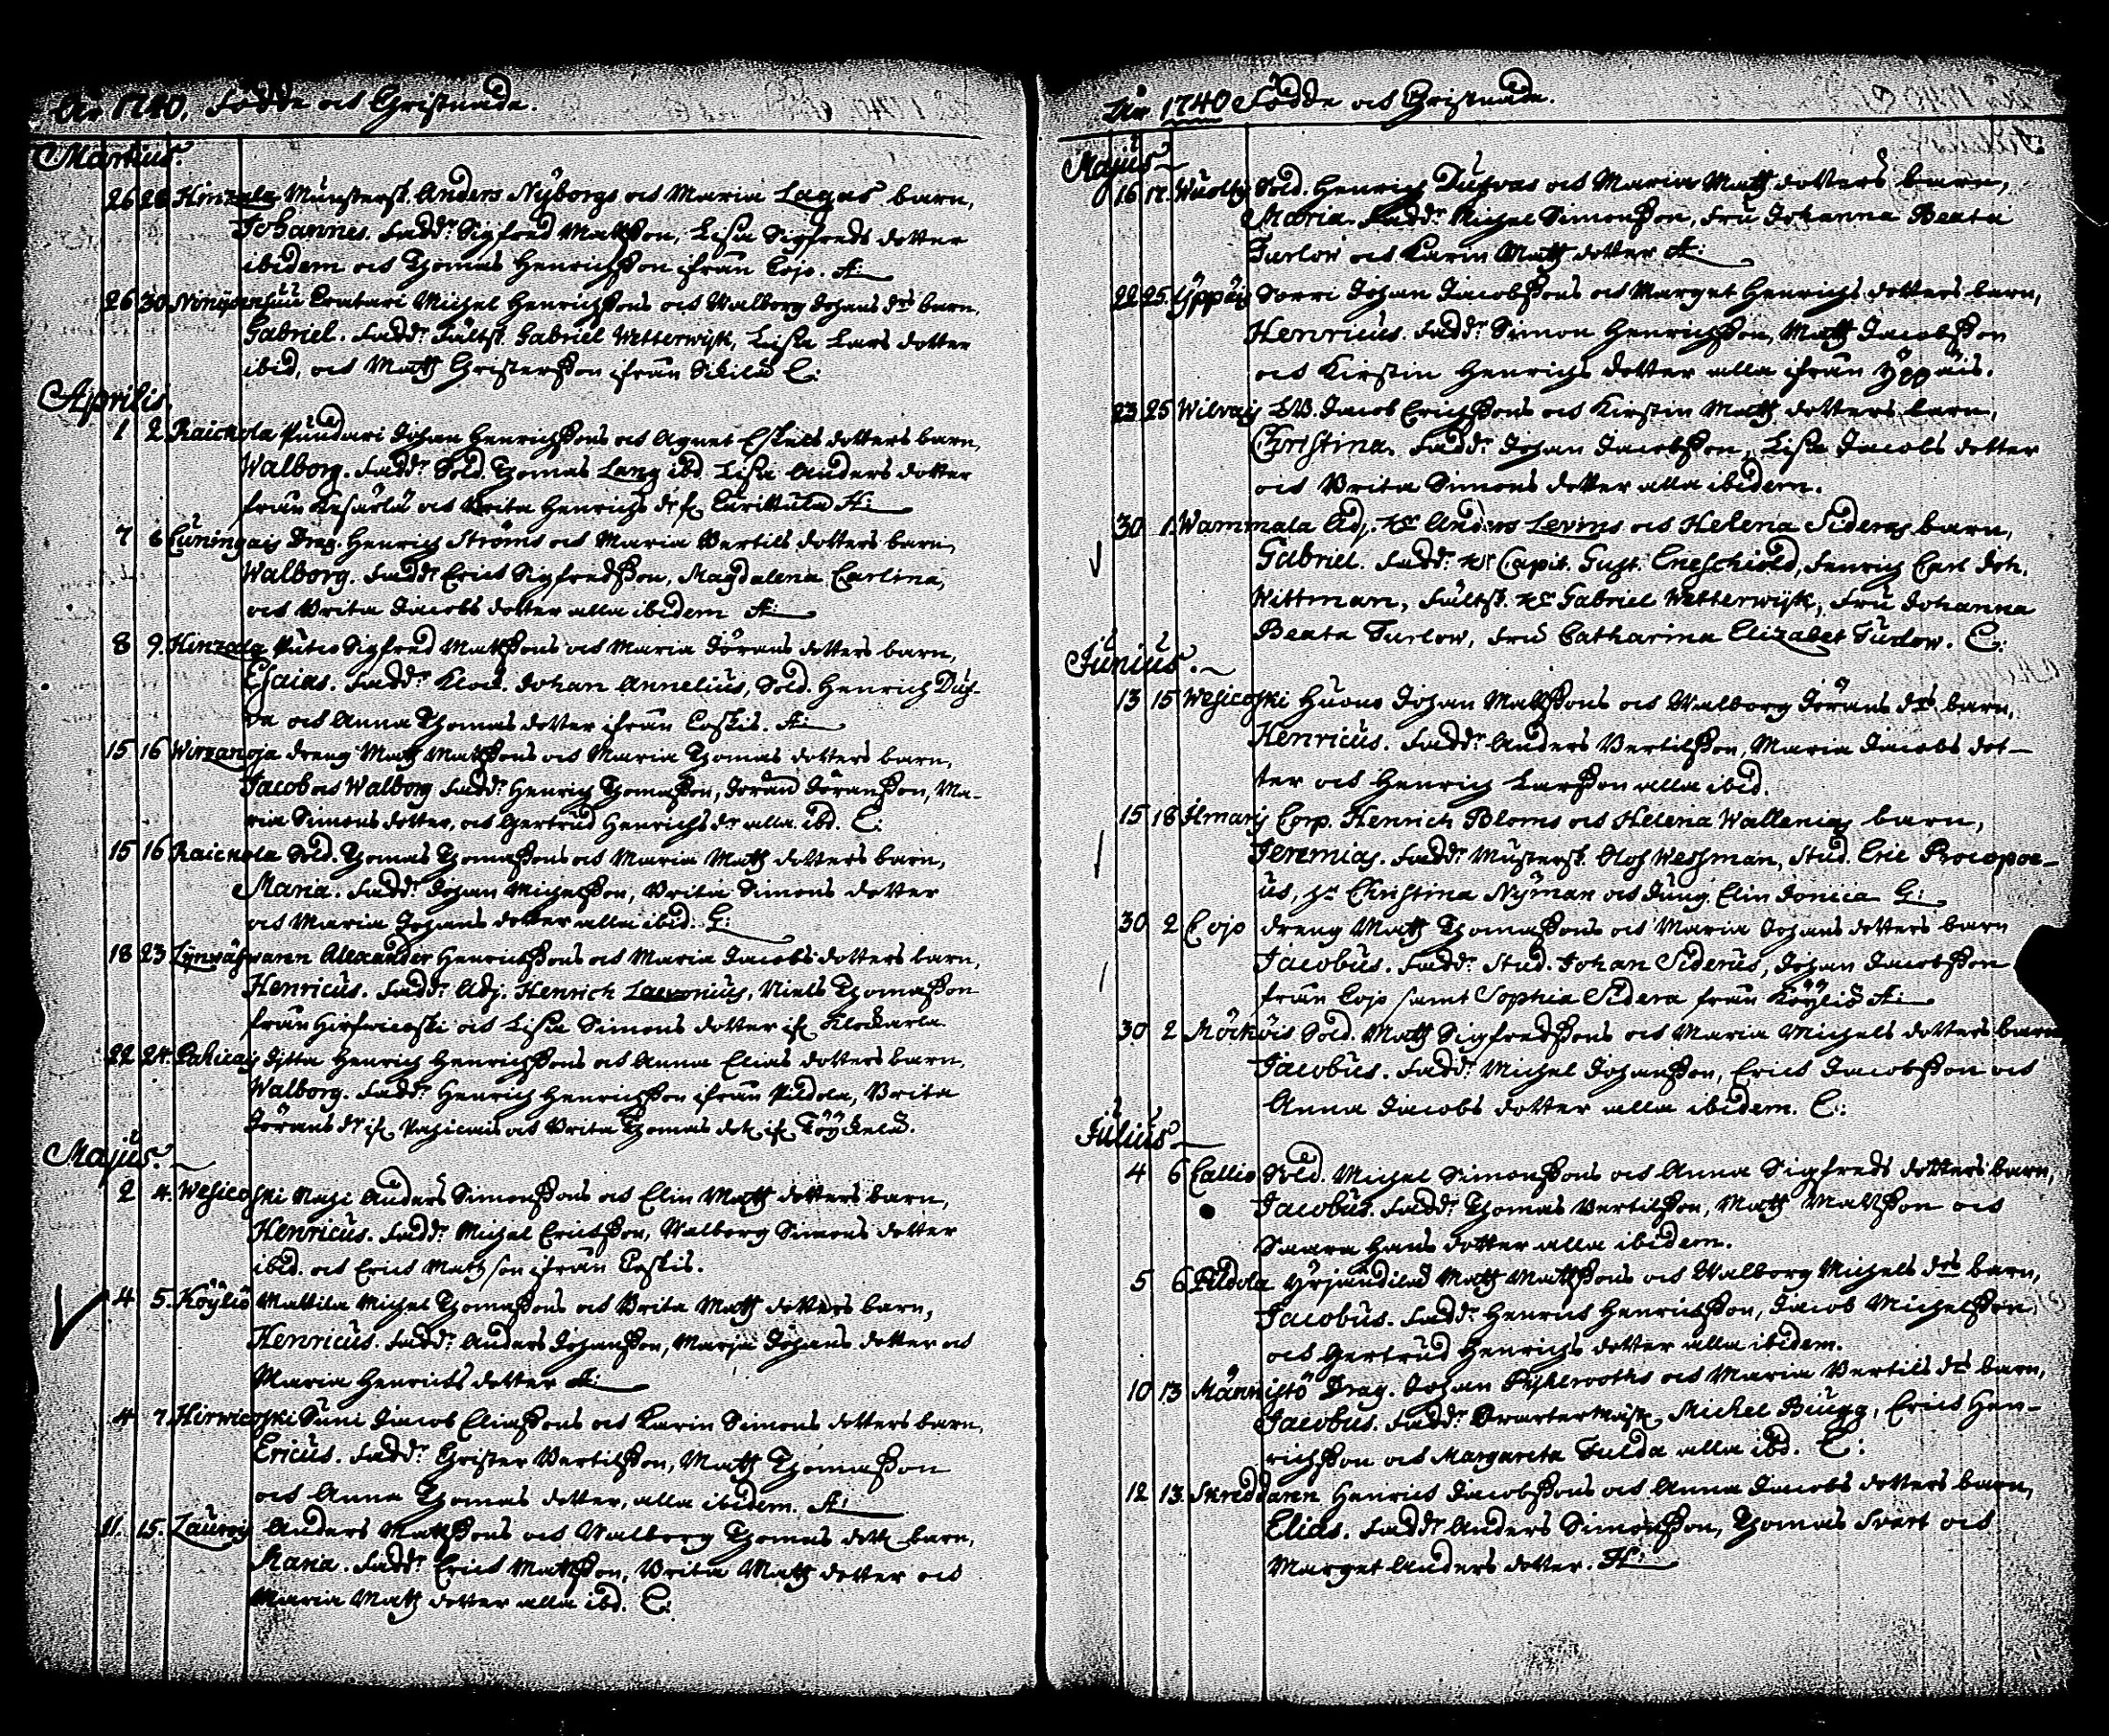 År 1740. Födde och Christnade.
Martius.
26 28 Hinzala Munsterskr. Anders Nyborgs och Maria Lagas barn,
Johannes. Fadd:r Sigfred Mattsson, Lisa Sigfreds dotter
ibidem och Thomas Henrichsson ifrån Cojo. A:
26 30 Cratari Michel Henrichssons och Walborg Johans d:rs barn,
Gabriel. Fadd:r Fältsk. Gabriel Wetterwijk, Lisa Lars dotter
ibid, och Matth Christersson ifrån Sikilä C:
Aprilis.
1 2 Raickola Pundari Johan Henrichssons och Agnet Eskels dotters barn,
Walborg. Fadd:r Sold. Thomas Lang ibd. Lisa Anders dotter
från Kesärlä och Brita Henrichs dr fr. Carittula A:
7 6 Cuningais Drag. Henrich Ströms och Maria Bertils dotters barn,
Walborg. Fadd:r Erich Sigfredsson, Magdalena Carlina,
och Brita Jacobs dotter alla ibidem A:
8 9. Hinzala Putio Sigfred Mattssons och Maria Jörans dotters barn,
Esaias. Fadd:r Klock. Johan Annelius, Sold. Henrich Duf-
va och Anna Thomas dotter ifrån Coskis. A:
15 16 Wirzanoja dreng Matth Mattssons och Maria Thomas dotters barn,
Jacob och Walborg Fadd:r Henrich Thomasson, Jöran Jöransson, Ma-
ria Simons dotter, och Gertrud Henrichs dr alla ibd. C:
15 16 Raickola Sold. Thomas Thomassons och Maria Matth dotters barn,
Maria. Fadd:r Johan Michelsson, Brita Simons dotter
och Maria Johans dotter alla ibid. C:
18 23 Alexander Henrichssons och Maria Jacobs dotters barn,
Henricus. Fadd:r Adj. Henrich Laevonius, Niels Thomasson
från Hirfwicoski och Lisa Simons dotter if. Klockarla.
22 24. Pahicais Ditta Henrich Henrichssons och Anna Elias dotters barn,
Walborg. Fadd:r Henrich Henrichsson ifrån Pildola, Brita
Jörans dr if. Pahicais och Brita Thomas dot. if. Töyckelä.
Majus.
2 4. Wesicoski Nazi Anders Simonssons och Elin Matth dotters barn,
Henricus. Fadd:r Michel Erichsson, Walborg Simons dotter
ibid. och Erich Matthson ifrån Coskis.
4 5. Köyliö Mattila Michel Thomassons och Brita Matth dotters barn,
Henricus. Fadd:r Anders Johansson, Marja Johans dotter och
Maria Henrichs dotter A:
4 7. Hirwicoski Suni Jacob Eliassons och Karin Simons dotters barn,
Ericus. Fadd:r Christer Bertilsson, Matth Thomasson
och Anna Thomas dotter, alla ibidem. A:
11. 15. Laurois Anders Mattssons och Walborg Thomas dott. barn,
Maria. Fadd:r Erich Mattsson, Brita Matth dotter och
Maria Matth dotter alla ibd. C:
År 1740 Födde och Christnade.
Majus
16 17. Sold. Henrich Dufvas och Maria Matth dotters barn,
Maria. Fadd:r Michel Simonsson, Fru Johanna Beata
Furlow och Karin Matth dotter A:
22 25. Yppäis Sorri Johan Jacobssons och Marget Henrichs dotters barn,
Henricus. Fadd:r Simon Henrichsson, Matth Jacobsson
och Kirstin Henrichs dotter alla ifrån Yppäis.
23 25 Wilvais LB. Jacob Erichssons och Kirstin Matth dotters barn,
Christina. Fadd:r Johan Jacobsson, Lisa Jacobs dotter
och Brita Simons dotter alla ibidem.
30 1. Wammala Adj. Hr Anders Levins och Helena Sideras barn,
Gabriel. Fadd:r Hr Capit. Gust. Eneschiöld, Fenrich Carl Joh.
Wittman, Fältsk. Hr Gabriel Wetterwijk, Fru Johanna
Beata Furlow, Fru Catharina Elizabet Furlow. C:
Junius.
13 15 Wesicoski Huono Johan Mattssons och Walborg Jörans d:rs barn,
Henricus. Fadd:r Anders Bertilsson, Maria Jacobs dot-
ter och Henrich Larsson alla ibid.
15 18 Ilmaris Corp. Henrich Bloms och Helena Wallenias barn,
Jeremias. Fadd:r Munstersk. Olof Wessman, Stud. Eric Procopoe-
us, H:u Christina Nyman och Jung. Elin Jonica C:
30 2 Cojo dreng Matth Thomassons och Maria Johans dotters barn
Jacobus. Fadd:r Stud. Johan Siderus, Johan Jacobsson
från Cojo samt Sophia Sidera från Köyliö A:
30 2 Mörköis Sold. Matth Sigfredssons och Maria Michels dotters barn
Jacobus. Fadd:r Michel Johansson, Erich Jacobsson och
Anna Jacobs dotter alla ibidem. C:
Julius
4 6 Callio Sold. Michel Simonssons och Anna Sigfreds dotters barn,
Jacobus. Fadd:r Thomas Bertilsson, Matth Mattsson och
Saara Hans dotter alla ibidem.
5 6 Pildola Yrjändilä Matth Mattssons och Walborg Michels d:rs barn,
Jacobus. Fadd:r Henrich Henrichsson, Jacob Michelsson
och Gertrud Henrichs dotter alla ibidem.
10 13 Männistö Drag. Johan och Maria Bertils d:rs barn,
Jacobus. Fadd:r Qvartermäst. Michel Biugg, Erich Hen-
richsson och Margareta Fulda alla ibd. C:
12 13. Skreddarin Henrich Jacobssons och Anna Jacobs dotters barn,
Elias. Fadd:r Anders Simonsson, Thomas Svart och
Marget Anders dotter. A: